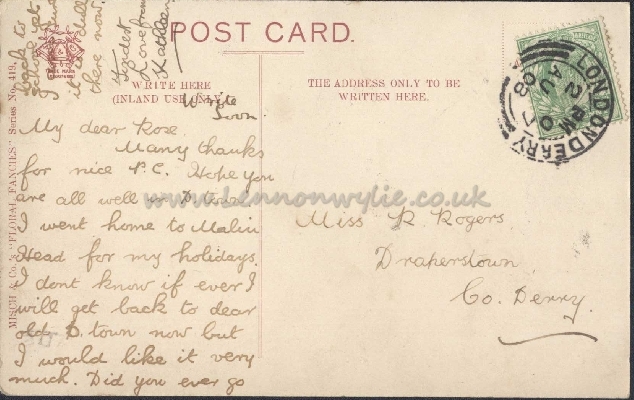 POST CARD.
WRITE HERE
(INLAND USE ONLY)
THE ADDRESS ONLY TO BE
WRITTEN HERE.
MISCH & Co.'s "FLORAL FANCIES" Series No. 419.
TRADE MARK
LONDONDERRY
2 PM
AU
07
08
Write
Soon
My dear Rose
Many thanks
for nice P.C. Hope you
are all well in D.town
I went home to Malin
Head for my holidays.
I dont know if ever I
will get back to dear
old D.town now but
I would like it very
much. Did you ever go
back to
school yet
I
it is dull
there now.
Fondest
Love from
Kathleen
Miss R Rogers
Draperstown
Co. Derry.
www.Lennonwylie.co.uk